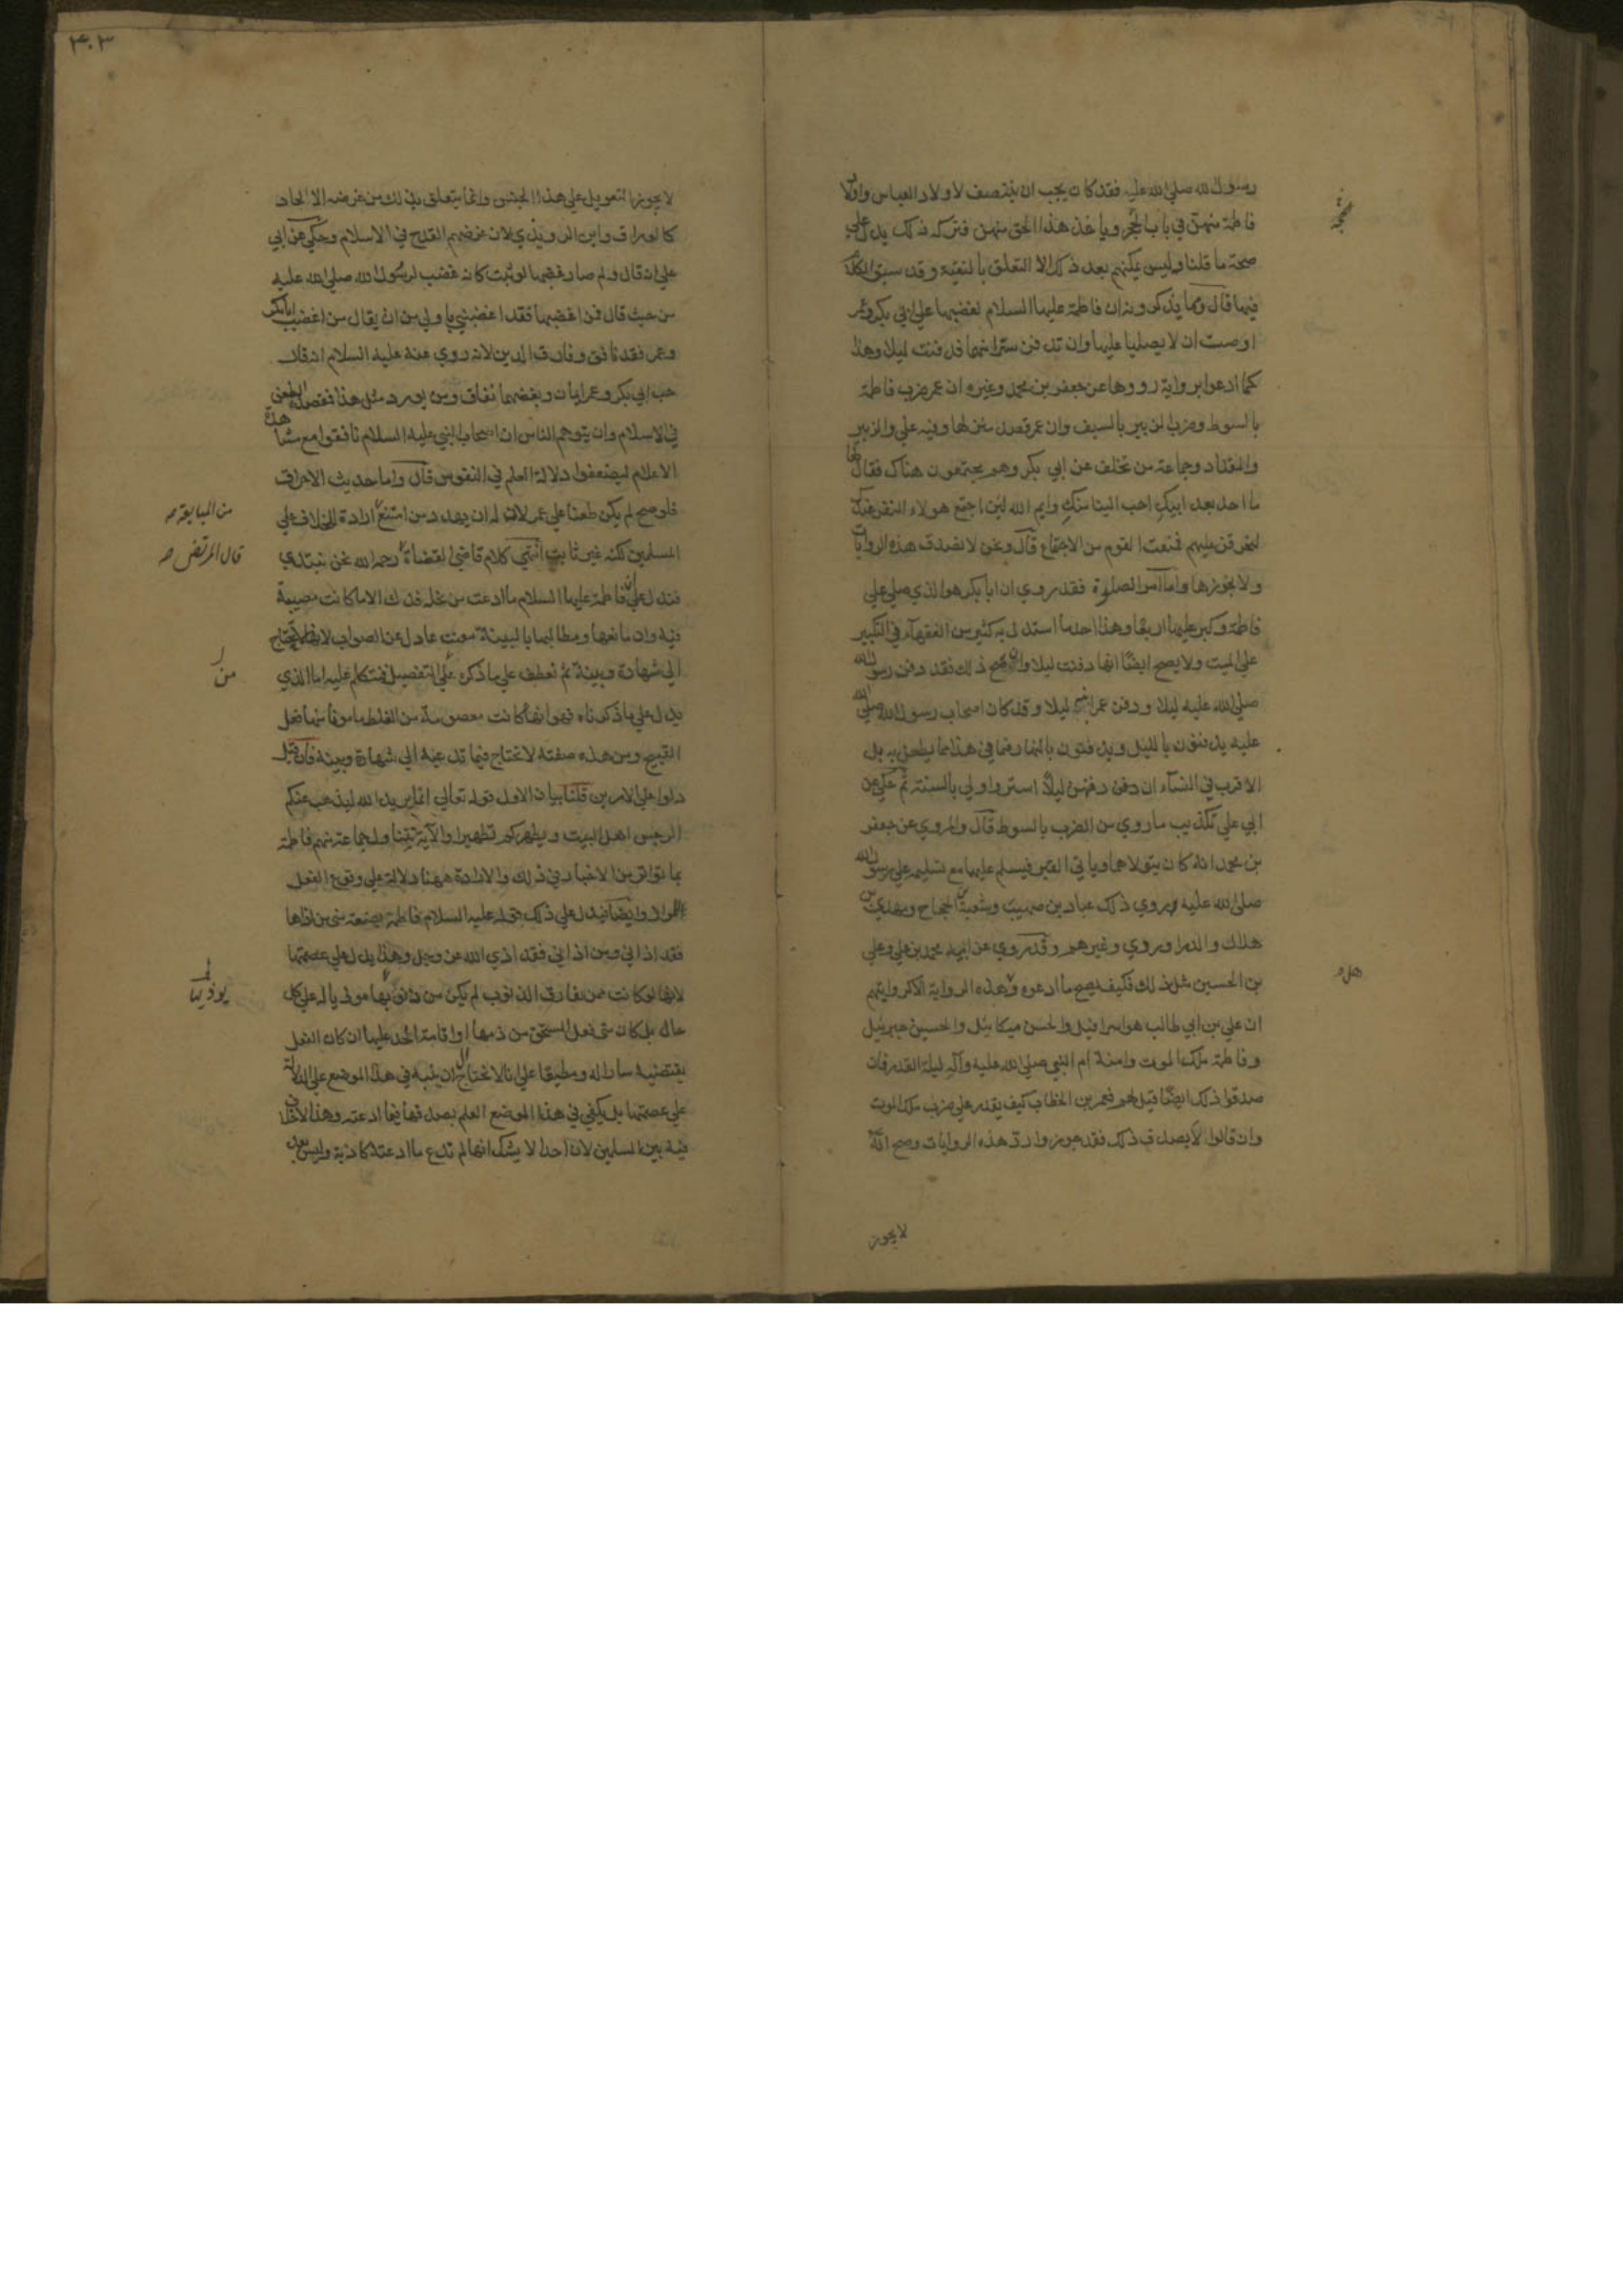 رسول الله صلى الله عليه فقد كان يجب ان ينتصف لاولاد العباس واولاد
فاطمة منهن في باب الحجر وياخذ هذا الحق منهن فتركه ذلك يدل علي
صحة ما قلنا وليس يمكنهم بعد ذلك الا التعلق بالتقية وقد سبق الكلام
فيها قال ومما يذكرونه ان فاطمة عليها السلام لغضبها علي ابي بكر وعمر
اوصت ان لا يصليا عليها وان تدفن سترا منهما فدفنت ليلا وهذا
كما ادعوا برواية رووها عن جعفر بن محمد وغيره ان عمر ضرب فاطمة
بالسوط وضرب الزبير بالسيف وان عمر قصد منزلها وفيه علي والزبير
والمقداد وجماعة من تخلف عن ابي بكر وهم يجتمعون هناك فقال لها
ما احد بعد ابيك احب الينا منك وايم الله لئن اجتمع هولاء النفر عندك
ليحرقن عليهم فمنعت القوم من الاجتماع قال ونحن لا نصدق هذه الروايات
ولا نجوزها واما امر الصلوة فقد روي ان ابا بكر هو الذي صلي علي
فاطمة وكبر عليها اربعا وهذا احد ما استدل به كثير من الفقهآء في التكبير
علي الميت ولا يصح ايضا انها دفنت ليلا وان صح ذلك فقد دفن رسول الله
صلى الله عليه ليلا ودفن عمر ابنه ليلا وقد كان اصحاب رسول الله صلي الله
عليه يدفنون بالليل ويدفنون بالنهار فما في هذا مما يطعن به بل
الاقرب في النسآء ان دفنهن ليلا استر واولي بالسنة ثم حكي عن
ابي علي تكذيب ما روي من الضرب بالسوط قال والمروي عن جعفر
بن محمد انه كان يتولاهما وياتي القبر فيسلم عليهما مع تسليمه علي رسول الله
صلى الله عليه وروي ذلك عباد بن صهيب وشعبة بن الحجاج ومهدي بن
هلال والدراوردي وغيرهم وقد روي عن ابيه محمد بن علي وعلي
بن الحسين مثل ذلك فكيف يصح ما ادعوه وهذه الرواية الا كروايتهم
ان علي بن ابي طالب هو اسرافيل والحسن ميكائيل والحسين جبرئيل
وفاطمة ملك الموت وامنة ام النبي صلى الله عليه وآله ليلة القدر فان
صدقوا ذلك ايضا قيل لهم فعمر بن الخطاب كيف يقدر علي ضرب ملك الموت
وان قالوا لا نصدق ذلك فقد جوزوا رد هذه الروايات وصح انه
لا يجوز
٣٠٣
لا يجوز التعويل علي هذا الجنس وانما يتعلق بذلك من غرضه الالحاد
كالوراق وابن الروندي لان غرضهم القدح في الاسلام وحكي عن ابي
علي انه قال ولم صار غضبها لو ثبت كانه غضب لرسول الله صلى الله عليه
من حيث قال فمن اغضبها فقد اغضبني باولي من ان يقال من اغضب ابا بكر
وعمر فقد نافق وفارق الدين لانه روي عنه عليه السلام انه قال
حب ابي بكر وعمر ايمان وبغضهما نفاق ومن يورد مثل هذا فقصده الطعن
في الاسلام وان يتوهم الناس ان اصحاب النبي عليه السلام نافقوا مع مشاهدة
الاعلام ليضعفوا دلالة العلم في النفوس قال واما حديث الاحراق
فلو صح لم يكن طعنا علي عمر لان له ان يهدد من امتنع ارادة للخلاف علي
من المبايعة
المسلمين لكنه غير ثابت انتهي كلام قاضي القضاة رحمه الله نحن نبتدي
قال المرتضي
فندل علي ان فاطمة عليها السلام ما ادعت من نحلة فدك الا ما كانت مصيبة
فيه وان مانعها ومطالبها بالبينة متعنت عادل عن الصواب لانها لا تحتاج
الي شهادة وبينة ثم نعطف علي ما ذكره علي التفصيل فنتكلم عليه اما الذي
يدل علي ما ذكرناه فهو انها كانت معصومة من الغلط مامونا منها فعل
القبيح ومن هذه صفته لا تحتاج فيما تدعيه الي شهادة وبينة فان قيل
دلوا علي الامرين قلنا بيان الاول قوله تعالي انما يريد الله ليذهب عنكم
الرجس اهل البيت ويطهركم تطهيرا والآية تتناول جماعة منهم فاطمة
بما تواتر من الاخبار في ذلك والارادة ههنا دلالة علي وقوع الفعل
المراد وايضا فيدل علي ذلك قوله عليه السلام فاطمة بضعة مني من اذاها
فقد اذاني ومن اذاني فقد اذي الله عز وجل وهذا يدل علي عصمتها
لانها لو كانت ممن تقارف الذنوب لم يكن من بها موذيا له علي كل
حال بل كان متي فعل المستحق من ذمها او اقامة الحد عليها ان كان الفعل
يقتضيه سارا له ومطيعا علي انا لا نحتاج ان ننبه في هذا الموضع علي الدلالة
علي عصمتها بل يكفي في هذا الموضع العلم بصدقها فيما ادعته وهذا لا خلاف
فيه بين المسلمين لان احدا لا يشك انها لم تدع ما ادعته كاذبة وليس بعد